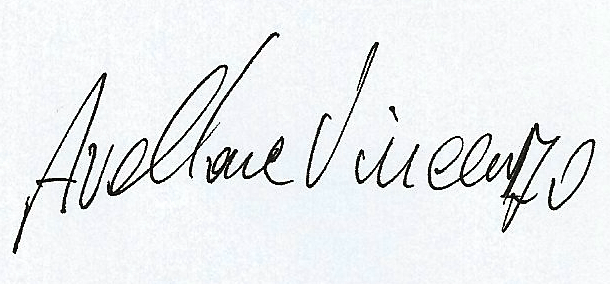 Avellone Vincenzo